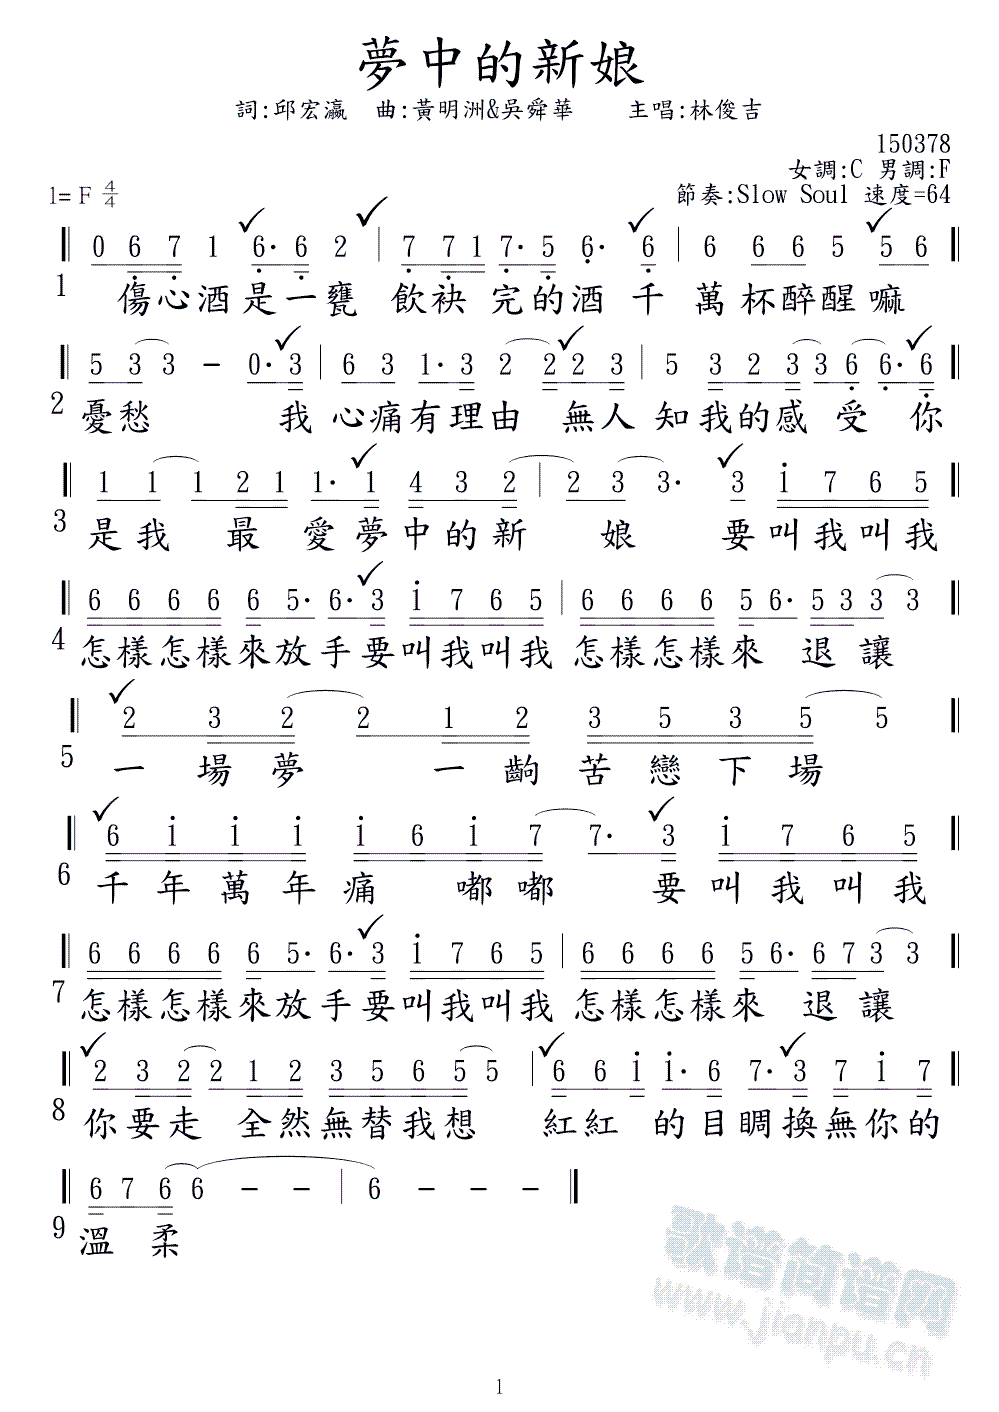 夢中的新娘
詞:邱宏瀛 曲:黃明洲&吳舜華 主唱:林俊吉
150378
女調:C 男調:F
1= F 4/4 節奏:Slow Soul 速度=64
0 6 7 1 6· 6 2 | 7 7 1 7· 5 6· 6 | 6 6 6 5 5 6
1 傷心酒是一甕 飲袂 完的酒 千 萬杯醉醒嘛
5 3 3 - 0· 3 | 6 3 1· 3 2 2 2 3 | 5 3 2 3 3 6 6· 6
2 憂愁 我 心痛有理由 無人 知我的感 受 你
1 1 1 2 1 1· 1 4 3 2 | 2 3 3· 3 i 7 6 5
3 是我 最 愛夢中的新 娘 要叫我叫我
6 6 6 6 6 5· 6· 3 i 7 6 5 | 6 6 6 6 5 6· 5 3 3 3
4 怎樣怎樣來放手要叫我叫我 怎樣怎樣來 退 讓
2 3 2 2 1 2 3 5 3 5 5
5 一 場 夢 一 齣 苦 戀 下 場
6 i i i i 6 i 7 7· 3 i 7 6 5
6 千 年 萬 年 痛 嘟嘟 要 叫 我 叫 我
6 6 6 6 6 5· 6· 3 i 7 6 5 | 6 6 6 6 5 6· 6 7 3 3
7 怎樣怎樣來放手要叫我叫我 怎樣怎樣來 退 讓
2 3 2 2 1 2 3 5 6 5 5 | 6 6 i i· 6 7· 3 7 i 7
8 你要走 全然無替我想 紅紅 的目睭換無你的
6 7 6 6 - - | 6 - - -
9 溫 柔
歌谱简谱网
www.jianpu.cn
1